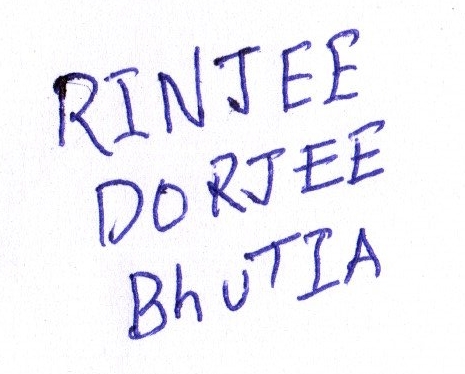 RINJEE
DORJEE
BhuTIA